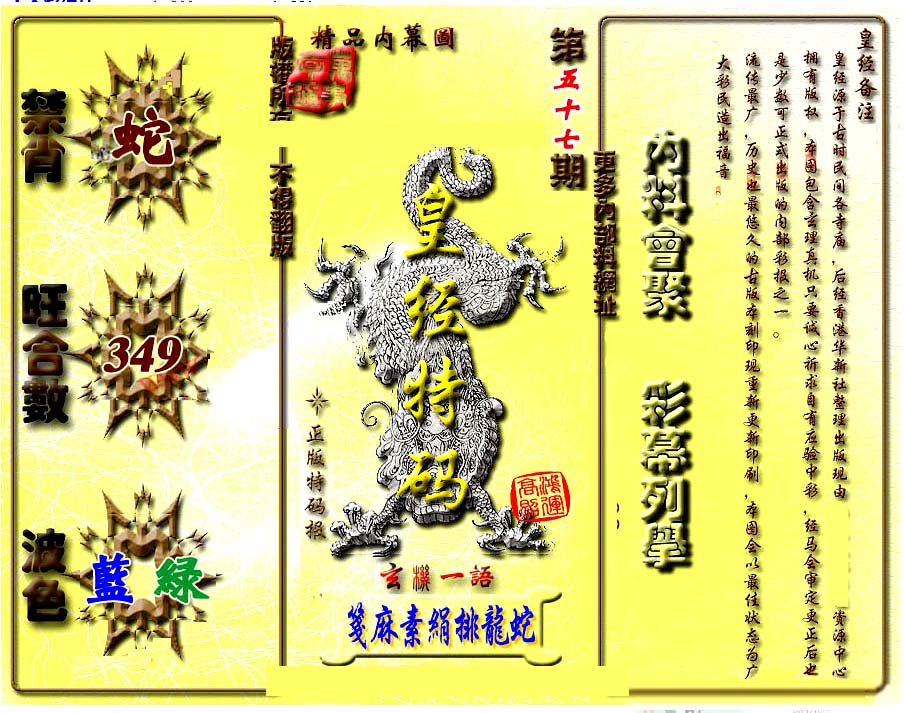 精品内幕圖
版權所有
不得翻版
第五十七期
更多內部料網址
禁肖
蛇
旺合數
349
波色
藍 綠
皇经特码
正版特码报
鴻運高照
玄機一語
箋麻素絹排龍蛇
內料會聚
彩幕列舉
皇经备注
皇经源于古时民间各寺庙，后经香港华新社整理出版现由 资源中心
拥有版权，本图包含玄理真机只要诚心祈求自有应验中彩，经马会审定更正后也
是少数可正式出版的内部彩报之一。
流传最广，历史也最悠久的古版本刻印现重新更新印刷，本图会以最佳状态为广
大彩民造出福音。